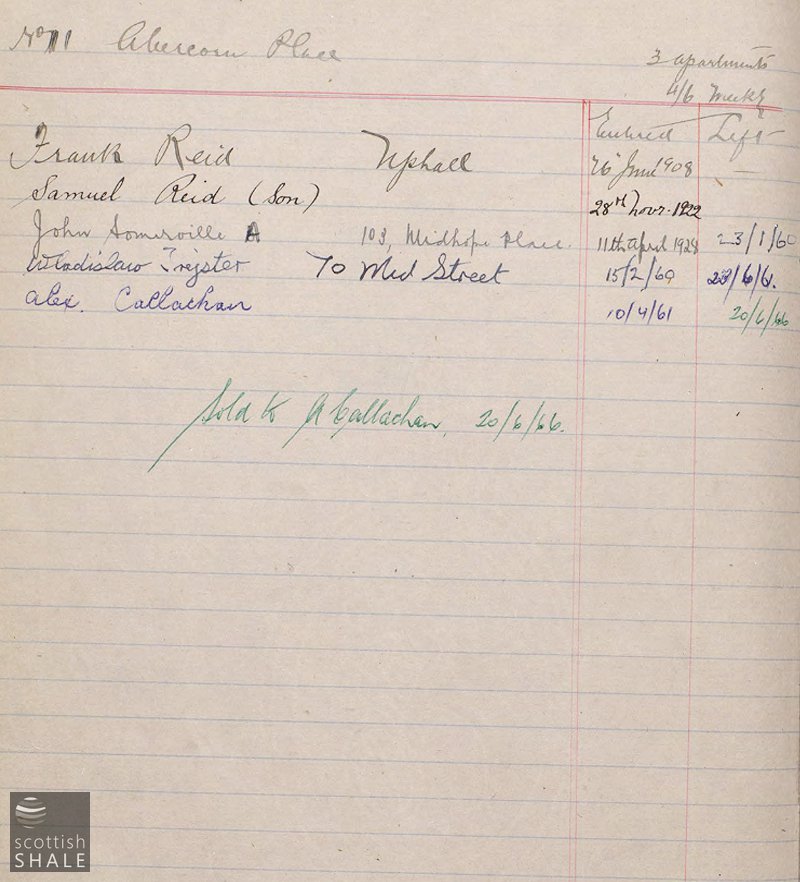 No 11 Abercorn Place
3 apartments
4/6 Weekly
Entered Left
Frank Reid Uphall 26 June 1908 —
Samuel Reid (Son) 28th Novr. 1922
John Somerville A 103, Midhope Place. 11th april 1928 23/1/60
Wladislaw To Mid Street 15/2/60 23/6/61.
Alex. Callachan 10/4/61 20/6/66
Sold to A Callachan, 20/6/66.
scottish
SHALE